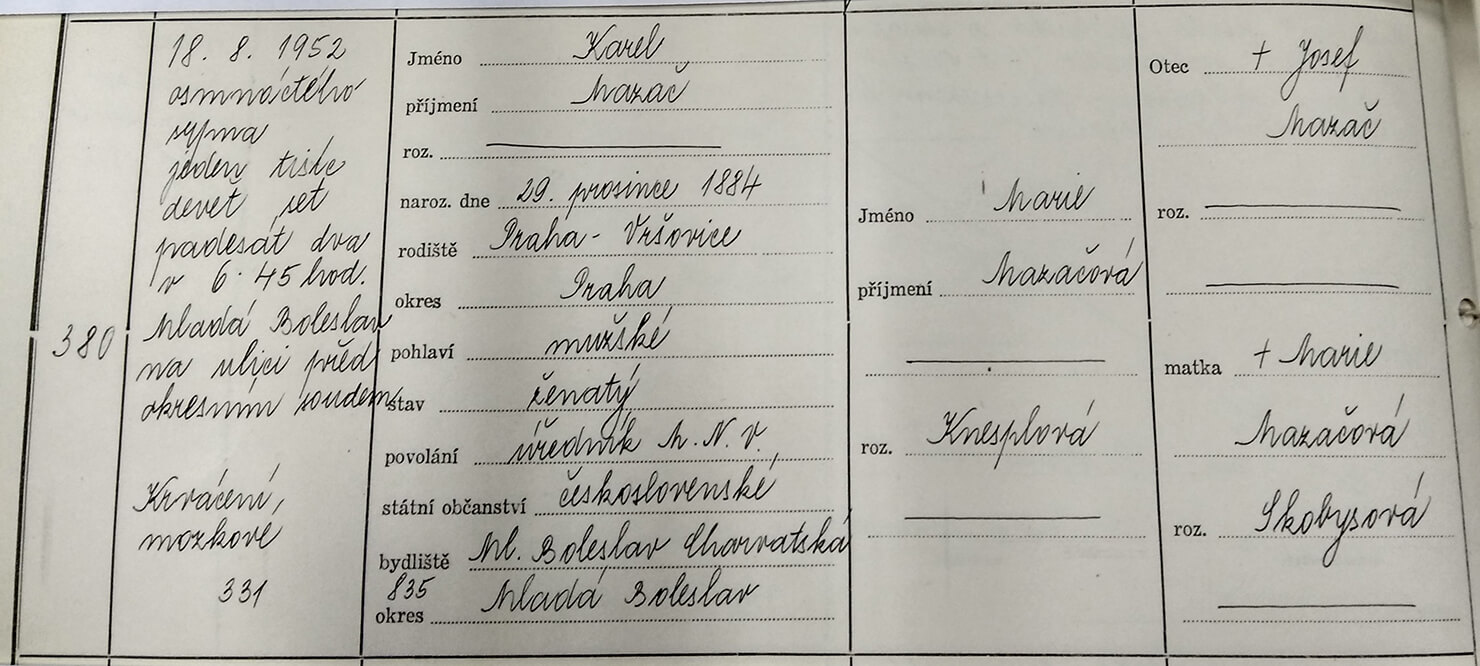 380
18. 8. 1952
osmnáctého
srpna
jeden tisíc
devět set
padesát dva
v 6.45 hod.
Mladá Boleslav
na ulici před
okresním soudem
Krvácení,
mozkové
331
Jméno Karel
příjmení Mazač
roz.
naroz. dne 29. prosince 1884
rodiště Praha - Vršovice
okres Praha
pohlaví mužské
stav ženatý
povolání úředník M. N. V.
státní občanství československé
bydliště Ml. Boleslav Charvatská
835
okres Mladá Boleslav
Jméno Marie
příjmení Mazačová
roz. Knesplová
Otec + Josef
Mazač
roz.
matka + Marie
Mazačová
roz. Skobysová